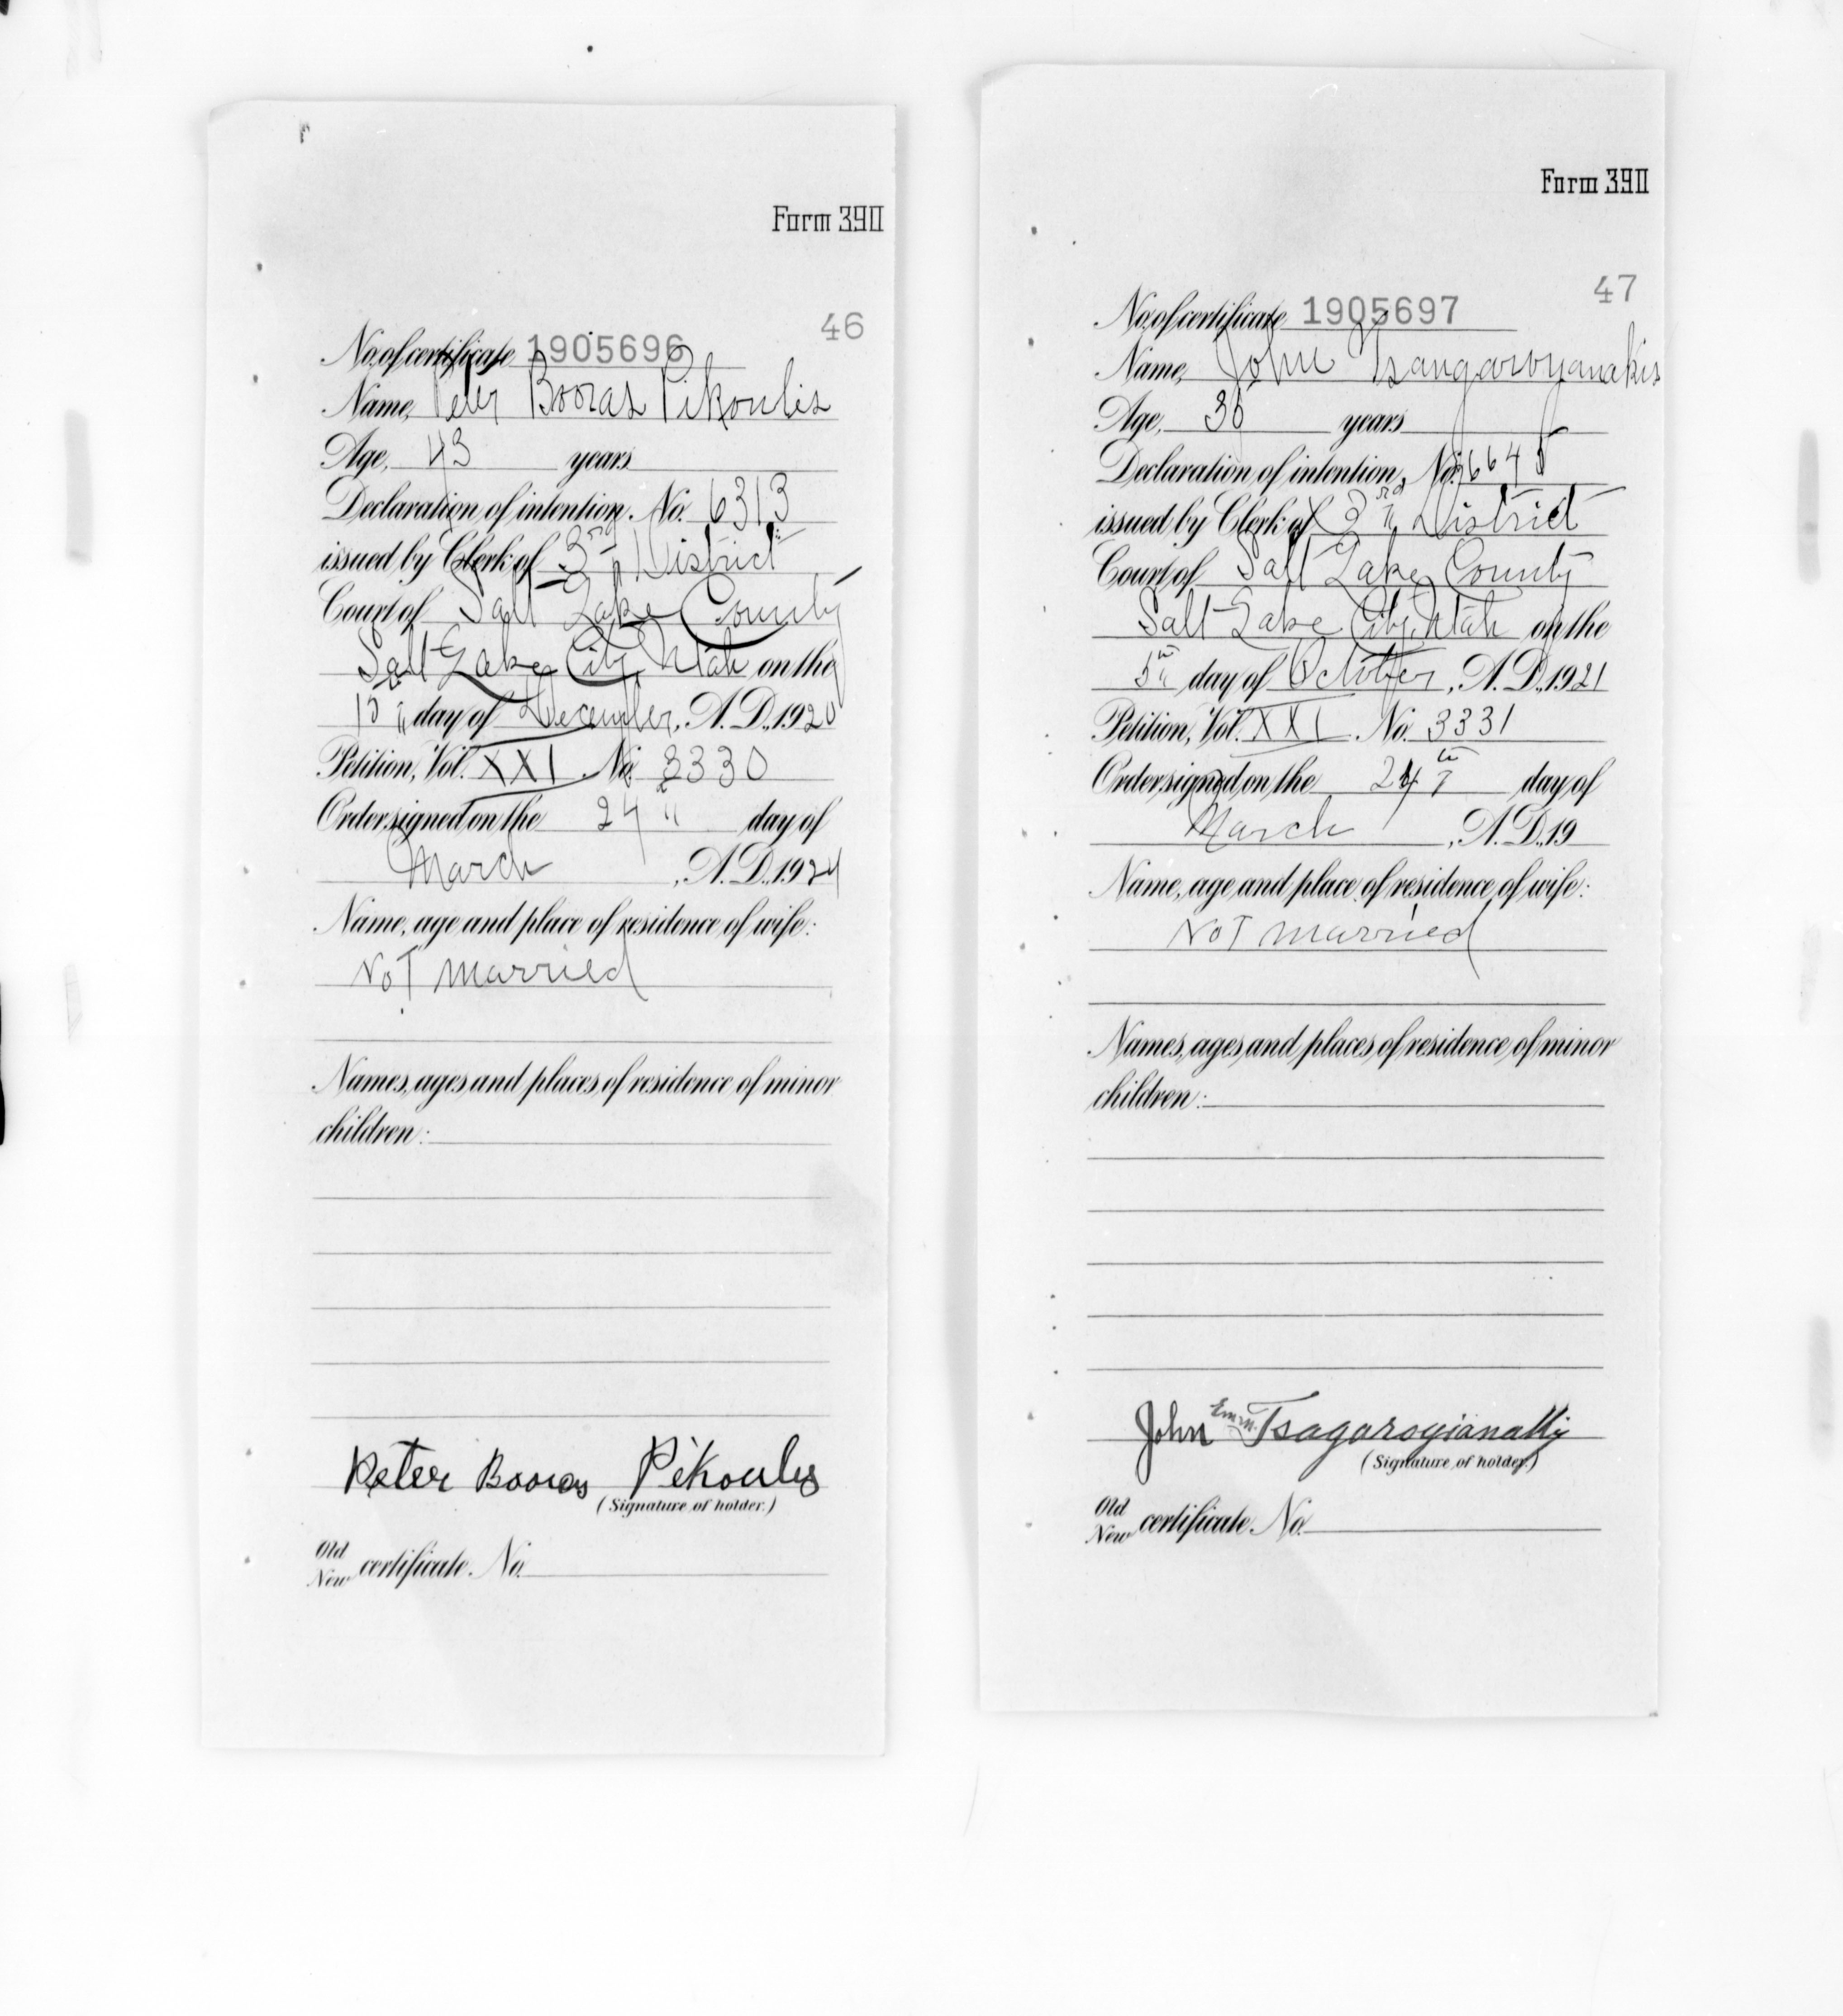 Form 390
46
No. of certificate 1905696
Name, Peter Booras Pikoulis
Age, 43 years
Declaration of intention, No. 6313
issued by Clerk of 3rd District
Court of Salt Lake County
Salt Lake City, Utah on the
day of December, A.D., 1920
Petition, Vol. XXI. No. 3330
Order signed on the 24 day of
March, A.D., 1924
Name, age and place of residence of wife:
Not married
Names, ages and places of residence of minor
children:
Peter Booras Pikoulis
(Signature of holder.)
Old
New certificate No.
Form 390
47
No. of certificate 1905697
Name, John Tsangaroyanakis
Age, years
Declaration of intention, No.
issued by Clerk of 3rd District
Court of Salt Lake County
Salt Lake City, Utah on the
5th day of October, A.D., 1921
Petition, Vol. XXI. No. 3331
Order signed on the 24th day of
March, A.D., 19
Name, age and place of residence of wife:
Not married
Names, ages and places of residence of minor
children:
John Emm. Tsagarogianakis
(Signature of holder.)
Old
New certificate No.